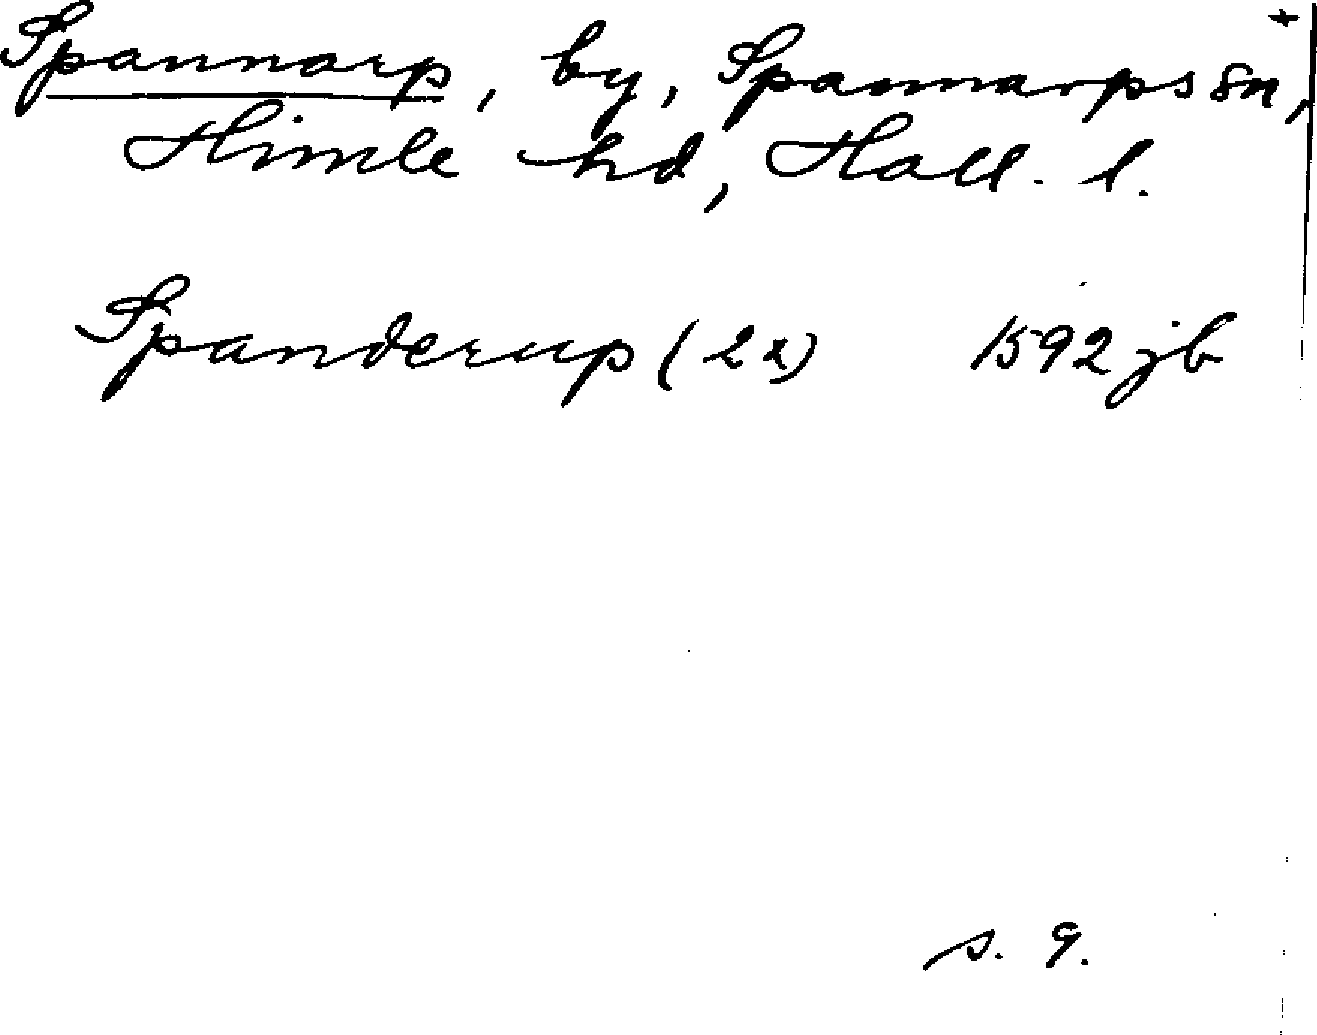 Spannarp, by, Spannarps sn, +
Himle hd, Hall. l.
Spanderup (2x) 1592 jb
s. 9.